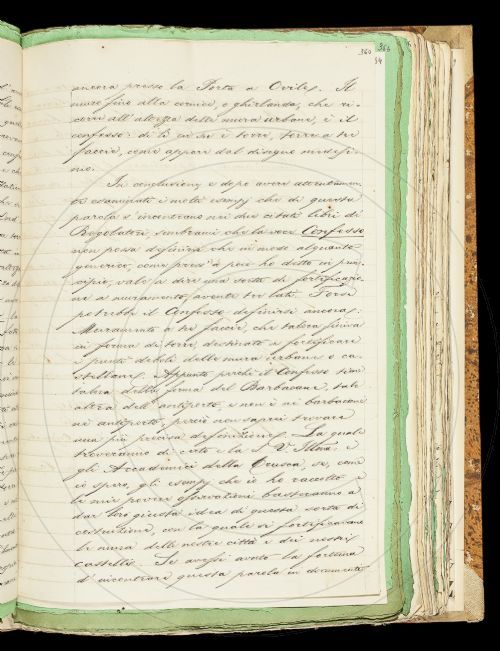 360 366
34
ancora presso la Porta a Ovile. Il
muro fino alla cornice, o ghirlanda, che ri-
corre all'altezza delle mura urbane, è il
confesso: di lì in su è torre, torre a tre
faccie, come appare dal disegno medesi-
mo.
In conclusione, e dopo avere attentamen-
te esaminati i molti esempj che di questa
parola s'incontrano nei due citati libri di
Regolatori, sembrami che la voce Confesso
non possa definirsi che in modo alquanto
generico, come press'a poco ho detto in prin-
cipio, vale a dire una sorta di fortificazio-
ne a muramento avente tre lati. Forse
potrebbe il Confesso definirsi ancora:
Muramento a tre faccie, che talora finiva
in forma di torre, destinato a fortificare
i punti deboli delle mura urbane o ca-
stellane. Appunto perchè il Confesso tene
talora della forma del Barbacane, tale
altra dell'antiporto, e non è nè barbacane
nè antiporto, perciò non saprei trovare
una più precisa definizione. La quale
troveranno di certo e la S. V. Illma. e
gli Accademici della Crusca, se, come
io spero, gli esempj che io ho raccolto e
le mie povere osservazioni basteranno a
dar loro giusta idea di questa sorta di
costruzione, con la quale si fortificavano
le mura delle nostre città e dei nostri
castelli. Se avessi avuto la fortuna
d'incontrare questa parola in documenti